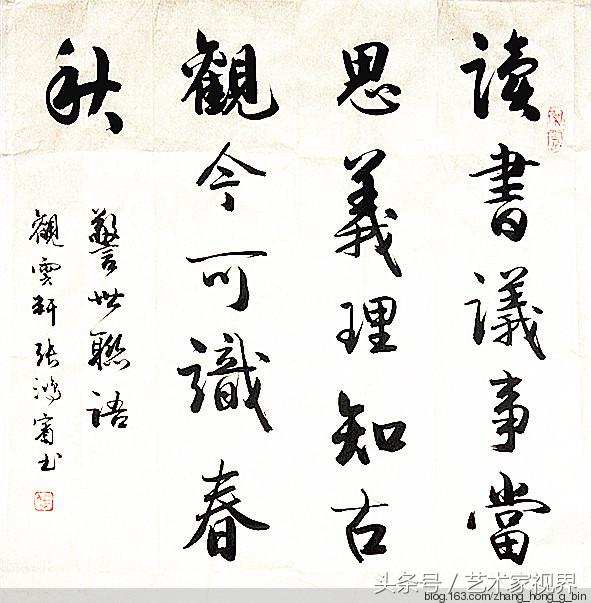 读书議事當
思義理知古
觀今可識春
秋
警世聯語
觀雲軒張鴻賓书
头条号／艺术家视界
blog.163.com/zhang_hong_g_bin